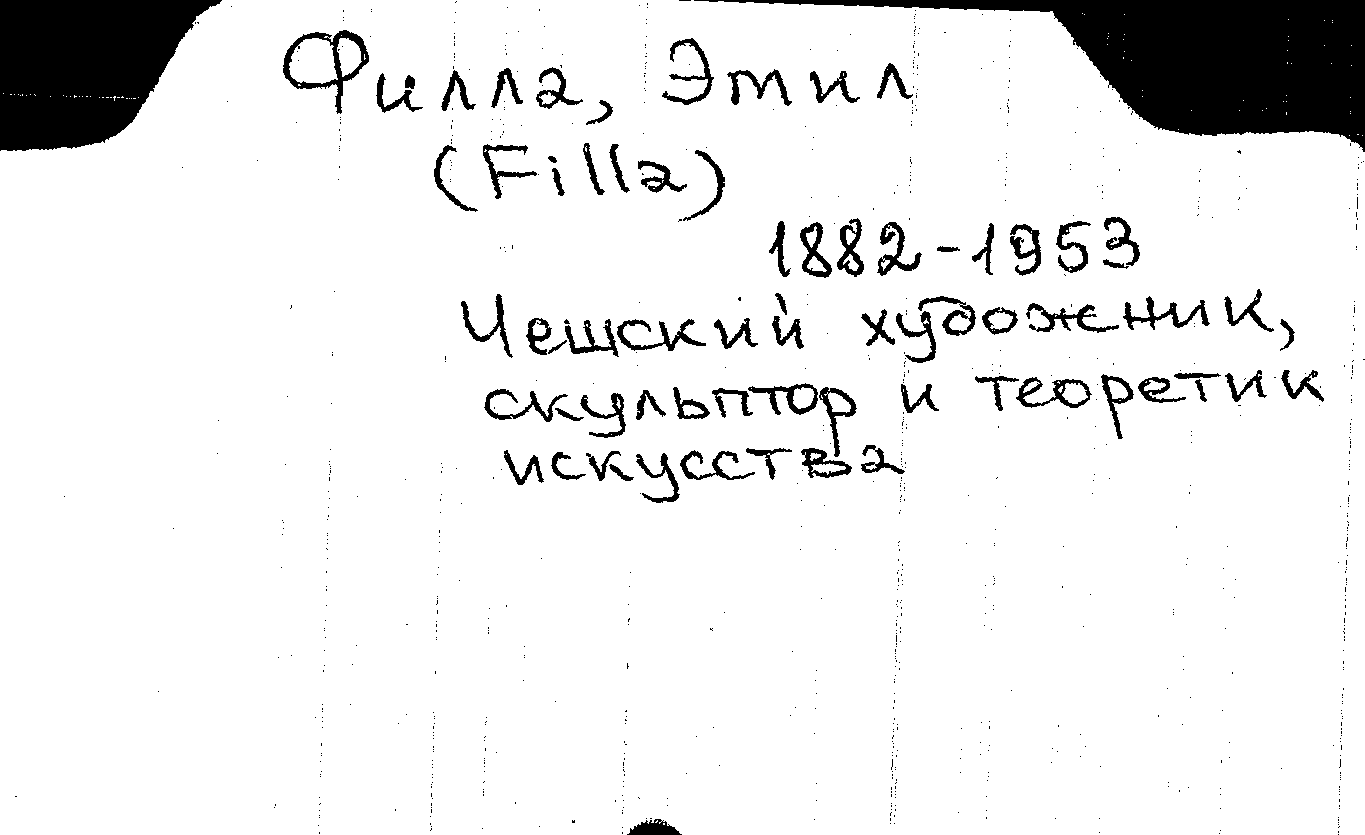 Филла, Этил
(Filla)
1882-1953
Чешский художник,
скульптор и теоретик
искусства